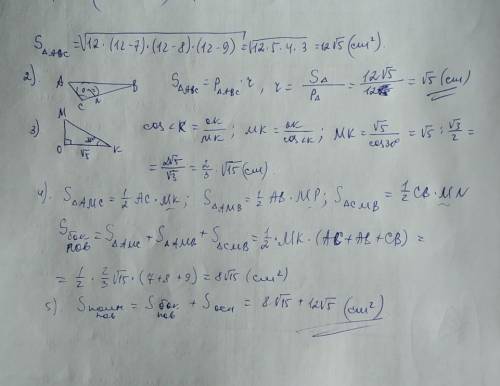 S△ABC = √12·(12-7)·(12-8)·(12-9) = √12·5·4·3 = 12√5 (cm²).
2). A B C r S△ABC = P△ABC · r , r = S△/P△ = 12√5/12 = √5 (cm)
3) M O K √5 30° cos∠K = OK/MK ; MK = OK/cos∠K ; MK = √5/cos30° = √5 : √3/2 =
= 2√5/√3 = 2/3 · √15 (cm)
4). S△AMC = 1/2 AC · MK ; S△AMB = 1/2 AB · MP ; S△CMB = 1/2 CB · MN
Sбок пов = S△AMC + S△AMB + S△CMB = 1/2 · MK · (AC + AB + CB) =
= 1/2 · 2/3 √15 · (7+8+9) = 8√15 (cm²)
5) Sполн пов = Sбок пов + Sосн = 8√15 + 12√5 (cm²)